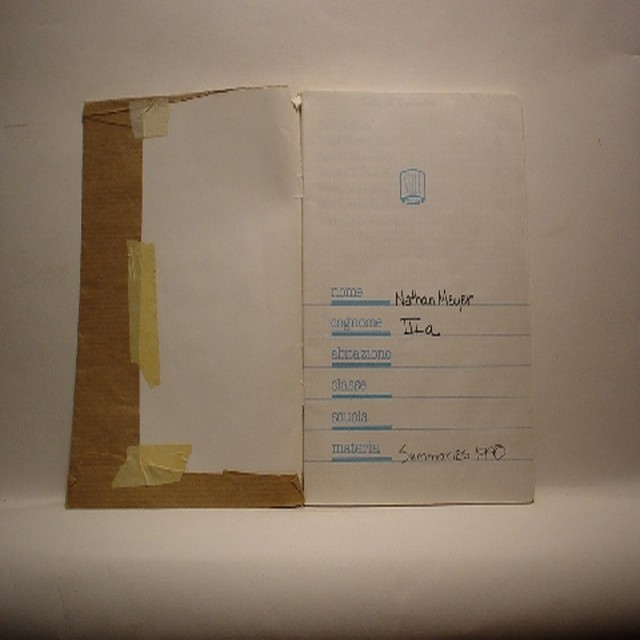 nome Nathan Meyer
cognome IIa
abitazione
classe
scuola
materia Summaries 1990